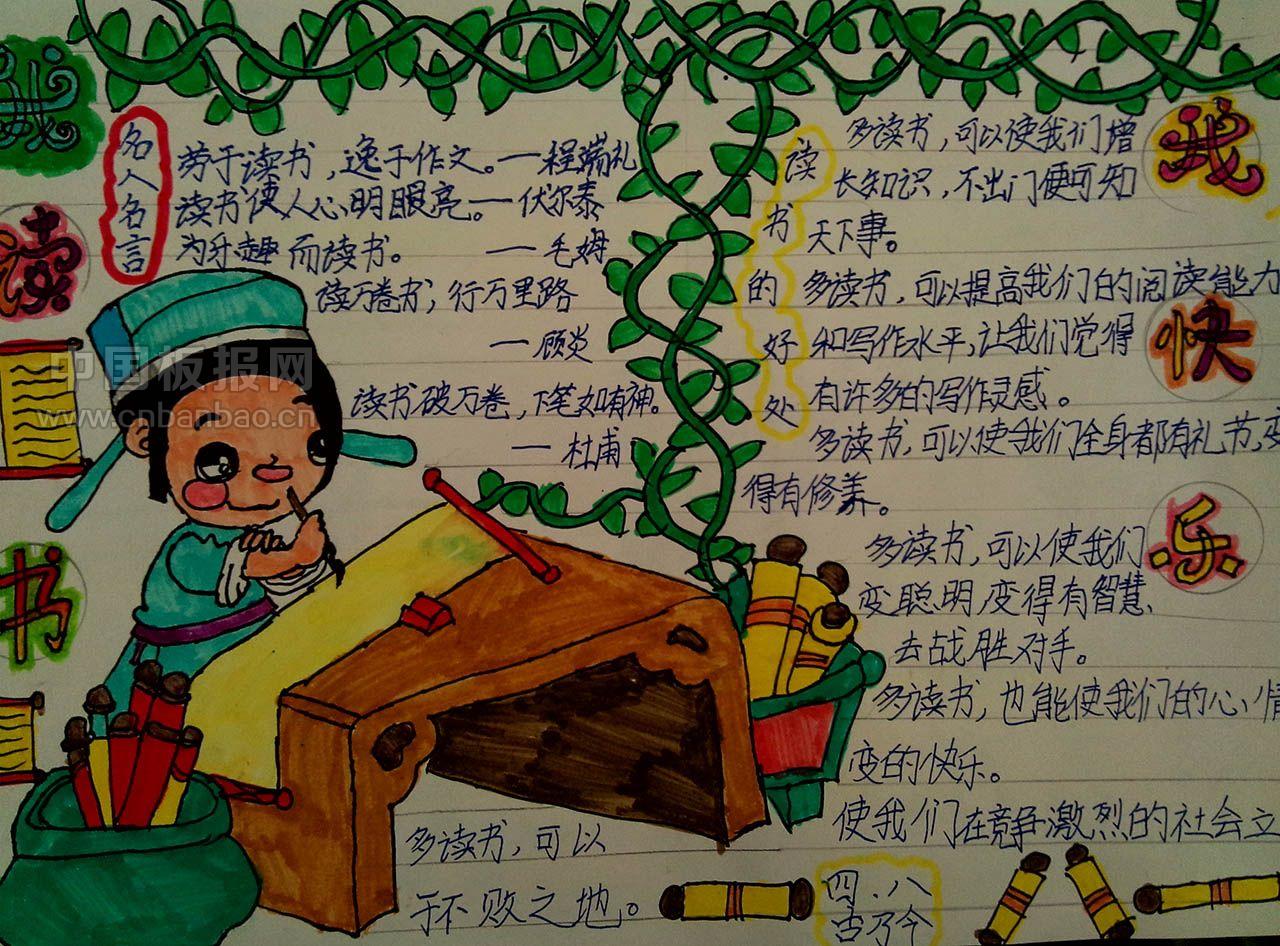 我
读
书
我
快
乐
名人名言
劳于读书，逸于作文。—程端礼
读书使人心明眼亮。—伏尔泰
为乐趣而读书。 —毛姆
读万卷书，行万里路
—顾炎
读书破万卷，下笔如有神。
—杜甫
读书的好处
多读书，可以使我们增
长知识，不出门便可知
天下事。
多读书，可以提高我们的阅读能力
和写作水平，让我们觉得
有许多的写作灵感。
多读书，可以使我们全身都有礼节，变
得有修养。
多读书，可以使我们
变聪明，变得有智慧、
去战胜对手。
多读书，也能使我们的心情
变的快乐。
多读书，可以
使我们在竞争激烈的社会立
于不败之地。
四.八
古乃今
中国板报网
www.cnbanbao.cn